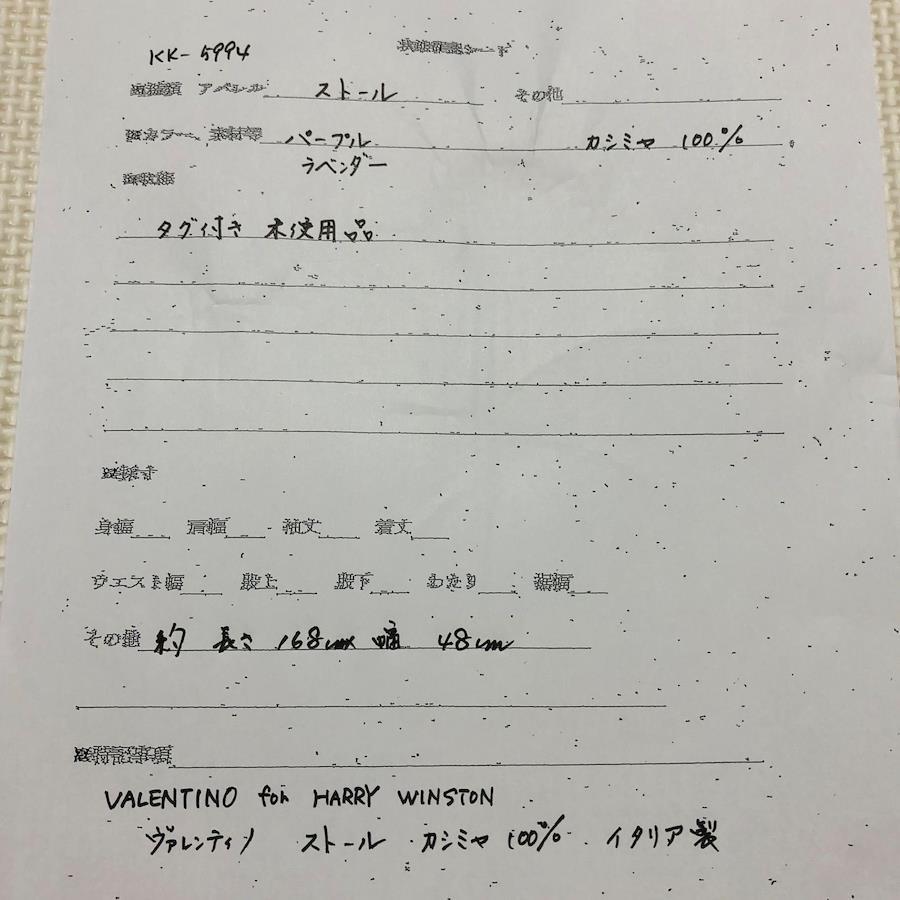 KK-5994
状態確認シート
アパレル ストール その他
カラー、素材等 パープル カシミヤ 100%
ラベンダー
タグ付き 未使用品
身幅 肩幅 袖丈 着丈
ウエスト幅 股上 股下 わたり 裾幅
その他 約 長さ 168cm× 幅 48cm
特記事項
VALENTINO for HARRY WINSTON
ヴァレンティノ ストール カシミヤ 100% イタリア製